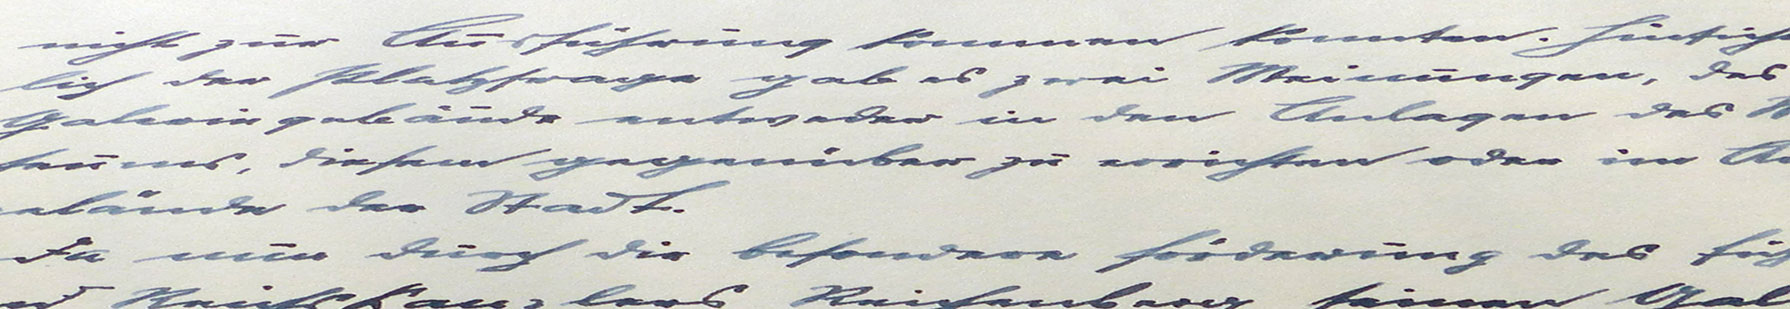 nicht zur Ausführung kommen konnten. Hinsicht
lich der Platzfrage gab es zwei Meinungen, das
Galeriegebäude entweder in den Anlagen des
diesem gegenüber zu errichten oder im
der Stadt.
Da nun durch die besondere Förderung des
Reichskanzlers Reichenberg seinen